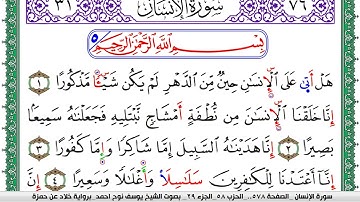 ٣١ سُورَةُ الإِنسَان ٧٦
بِسْمِ اللَّهِ الرَّحْمَٰنِ الرَّحِيمِ
هَلْ أَتَىٰ عَلَى الْإِنسَٰنِ حِينٌ مِّنَ الدَّهْرِ لَمْ يَكُن شَيْـًٔا مَّذْكُورًا ١
إِنَّا خَلَقْنَا الْإِنسَٰنَ مِن نُّطْفَةٍ أَمْشَاجٍ نَّبْتَلِيهِ فَجَعَلْنَٰهُ سَمِيعًا
بَصِيرًا ٢ إِنَّا هَدَيْنَٰهُ السَّبِيلَ إِمَّا شَاكِرًا وَإِمَّا كَفُورًا ٣
إِنَّا أَعْتَدْنَا لِلْكَٰفِرِينَ سَلَٰسِلَا۟ وَأَغْلَٰلًا وَسَعِيرًا ٤ إِنَّ
سورة الإنسان _الصفحة ٥٧٨_ الحزب ٥٨_ الجزء ٢٩_ بصوت الشيخ يوسف نوح احمد_ برواية خلاد عن حمزة